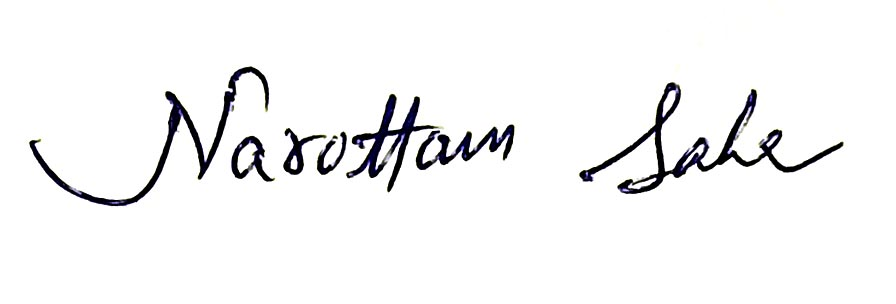 Narottam Sahe